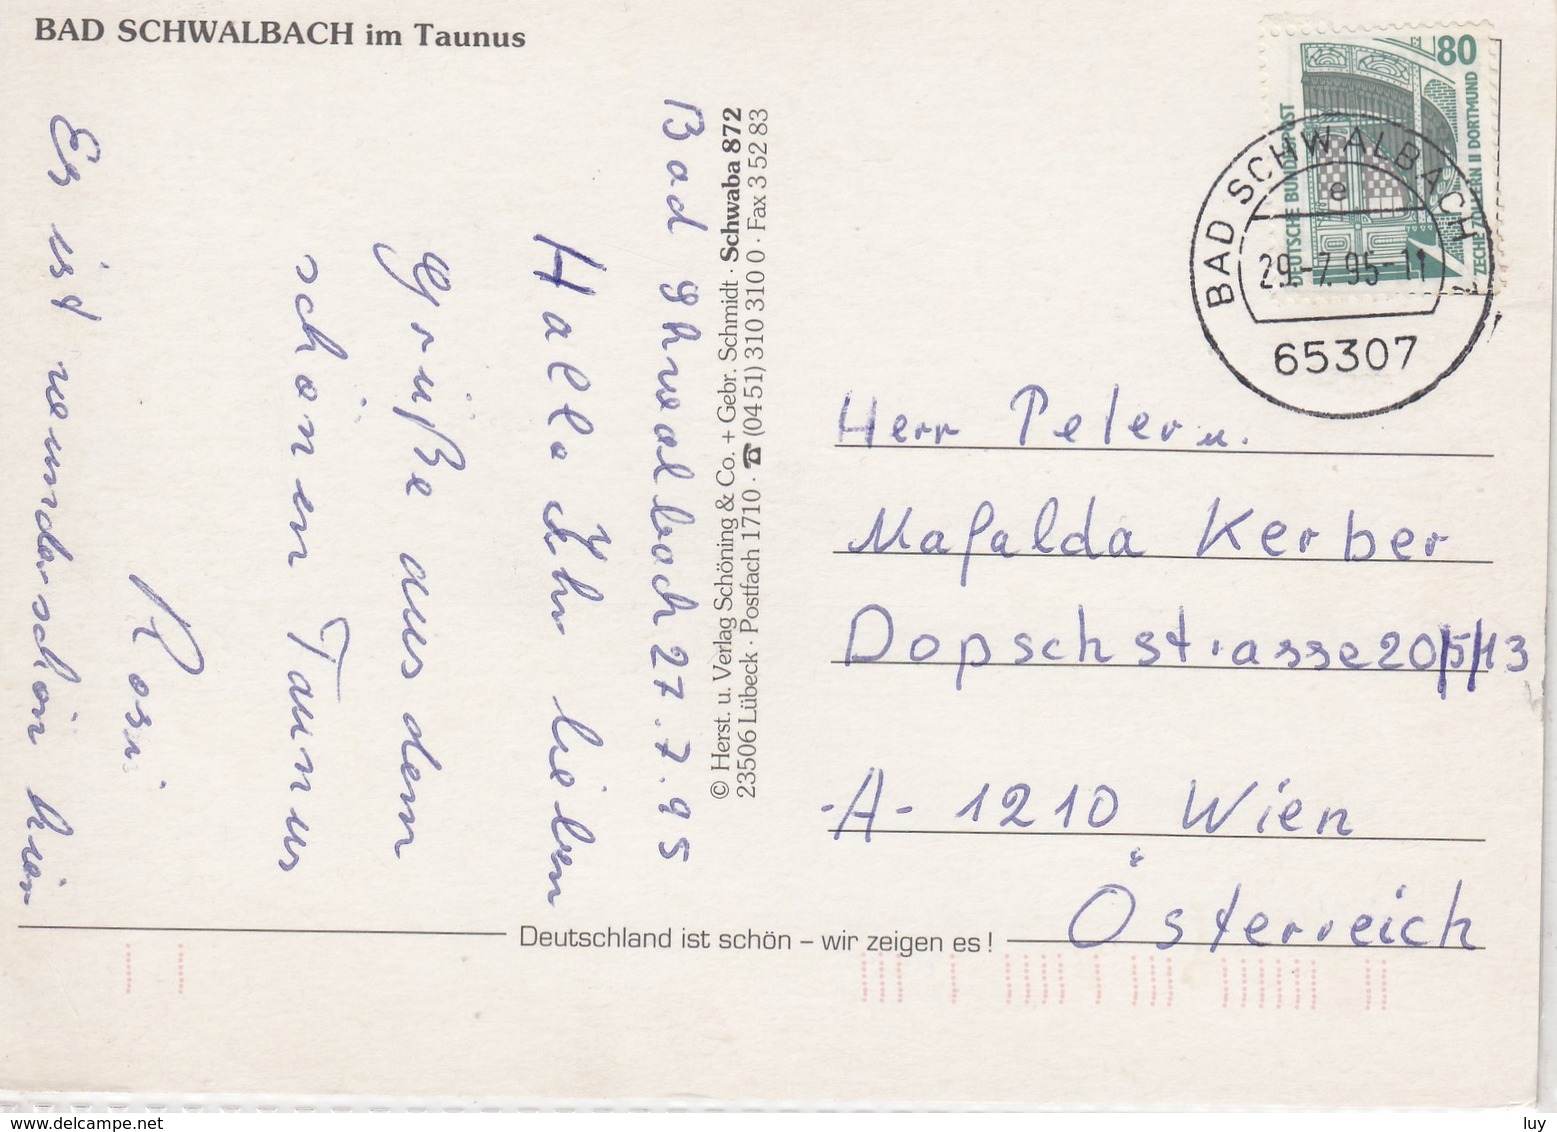 BAD SCHWALBACH im Taunus
Bad Schwalbach 27.7.95
Hallo Ihr lieben
Grüße aus dem
schönen Taunus
Rosi
Es ist wunderschön hier
© Herst. u. Verlag Schöning & Co. + Gebr. Schmidt · Schwaba 872
23506 Lübeck · Postfach 1710 · ☎ (04 51) 310 310 0 · Fax 3 52 83
80
DEUTSCHE BUNDESPOST
ZECHE ZOLLERN II DORTMUND
BAD SCHWALBACH
e
29.-7.95-11
65307
Herr Peter u.
Mafalda Kerber
Dopschstrasse 20/5/13
-A- 1210 Wien
Österreich
Deutschland ist schön – wir zeigen es!
www.delcampe.net
luy